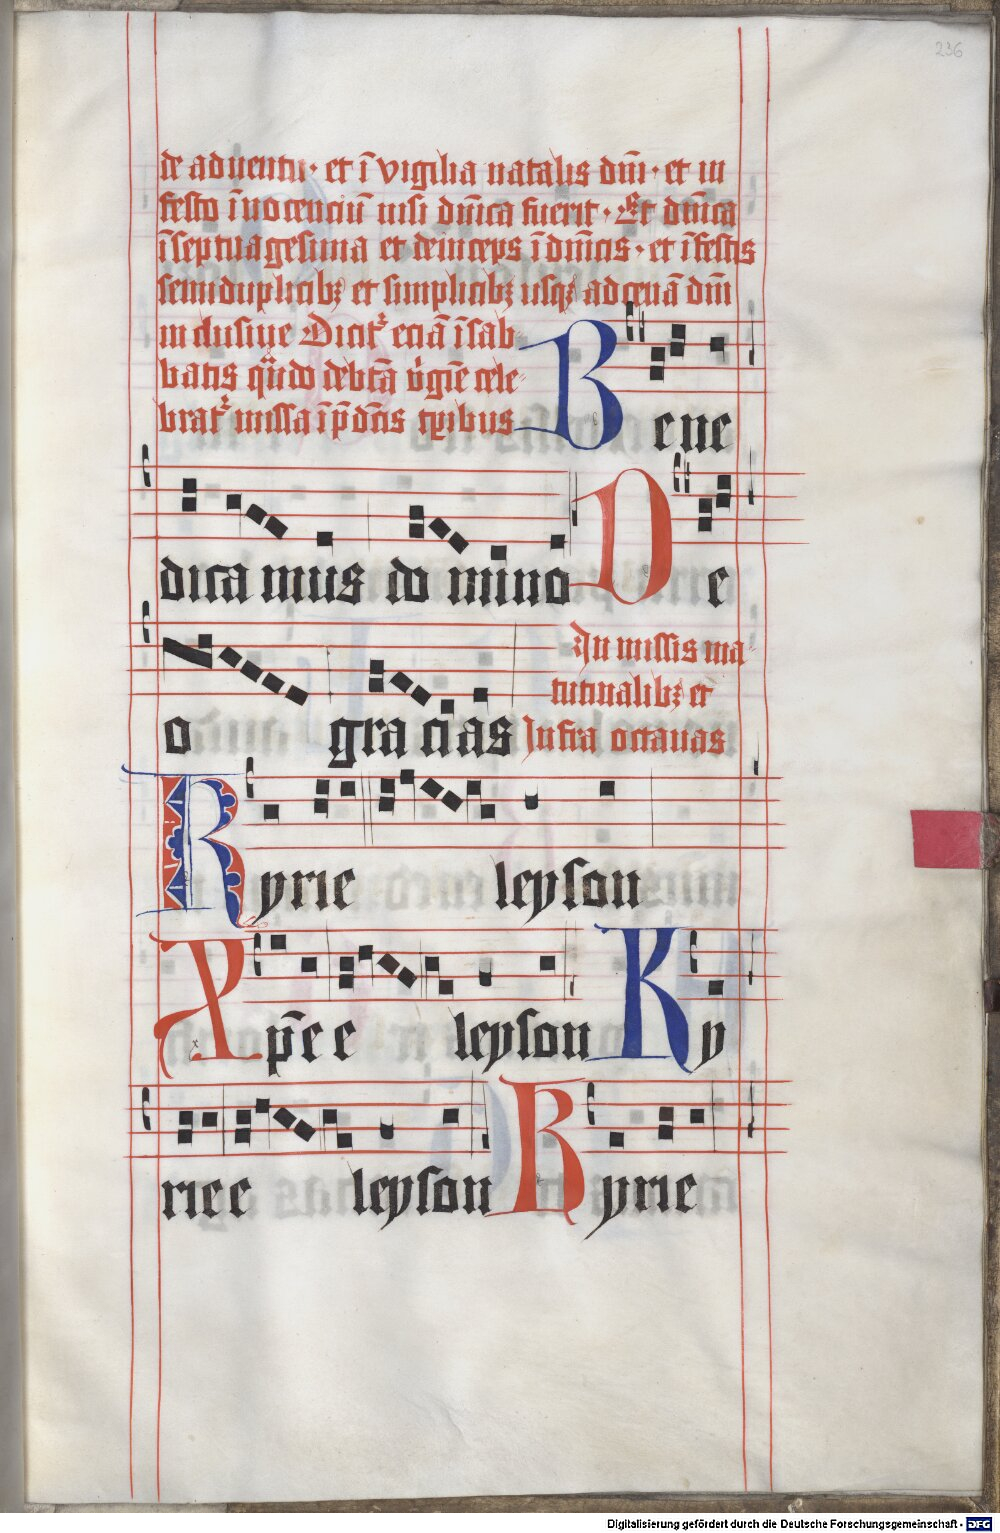 236
de aduentu · et ī vigilia natalis dn̄i · et in
festo īnocenciū nisi dn̄ica fuerit · Et dn̄ica
ī septuagesima et deinceps ī dn̄icis · et ī festis
semiduplicibꝫ et simplicibꝫ usqꝫ ad cenā dn̄i
inclusiue Dicit᷑ eciā ī sab
batis qn̄do
brat᷑ missa ī p̄dc̄is tp̄ibus
Bene
dicamus domino De
o gracias
In missis ma
tutinalibꝫ et
Infra octauas
Kyrie leyson
Xp̄e e leyson Ky
rie e leyson Kyrie
Digitalisierung gefördert durch die Deutsche Forschungsgemeinschaft - DFG